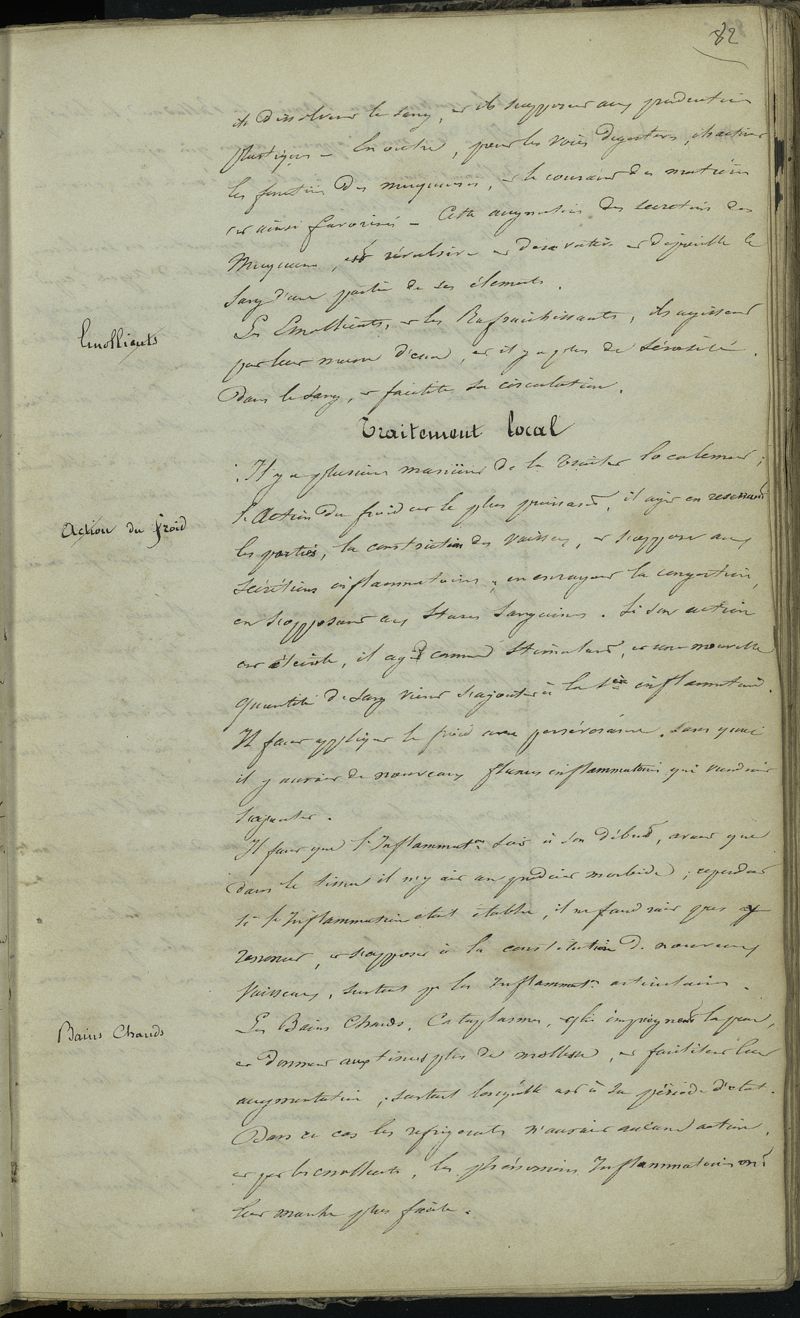 82
de dissolvent le sang, et ils s'opposent aux productions
plastiques – En outre, pour les voies digestives, ils activent
les fonctions des muqueuses, et le cours des matières
est ainsi favorisé – Cette augmentation des secretions des
Muqueuses, est révulsive et dépouille le
Sang d'une partie de ses élements.
Emollients
Les Emollients, et les Rafraichissants, ils agissent
par leur masse d'eau, et il y a plus de Sérosité
Dans le Sang, et facilite sa circulation.
Traitement local
Il y a plusieurs manières de la traiter localement ;
Action du froid
l'Action du froid est le plus puissant, il agit en resserrant
les parties, la constriction des Vaisseaux, et s'oppose aux
Sécrétions inflammatoires, en enrayant la congestion,
en s'opposant aux Stases Sanguines. Si son action
est éteinte, il agit comme Stimulant, et une nouvelle
quantité de Sang vient s'ajouter à la 1ère inflammation.
Il faut appliquer le froid avec persévérance. Sans quoi
il y aurait de nouveaux fluxus inflammatoires qui viendraient
s'ajouter.
Il faut que l'Inflammation soit à son début, avant que
dans le tissu il n'y ait un produit morbide ; cependant
Si l'Inflammation était établie, il ne faudrait pas
resserrer, et s'opposer à la constitution de nouveaux
Vaisseaux, surtout pr les Inflammatns articulaires.
Bains Chauds
Les Bains Chauds, Cataplasmes, imprègnent la peau,
et donnent aux tissus plus de mollesse, et facilitent leur
augmentation, surtout lorsqu'elle est à sa période d'etat.
Dans ce cas les refrigerants n'auraient aucune action,
et par les emollients, les phénomènes Inflammatoires ont
leur marche plus facile.